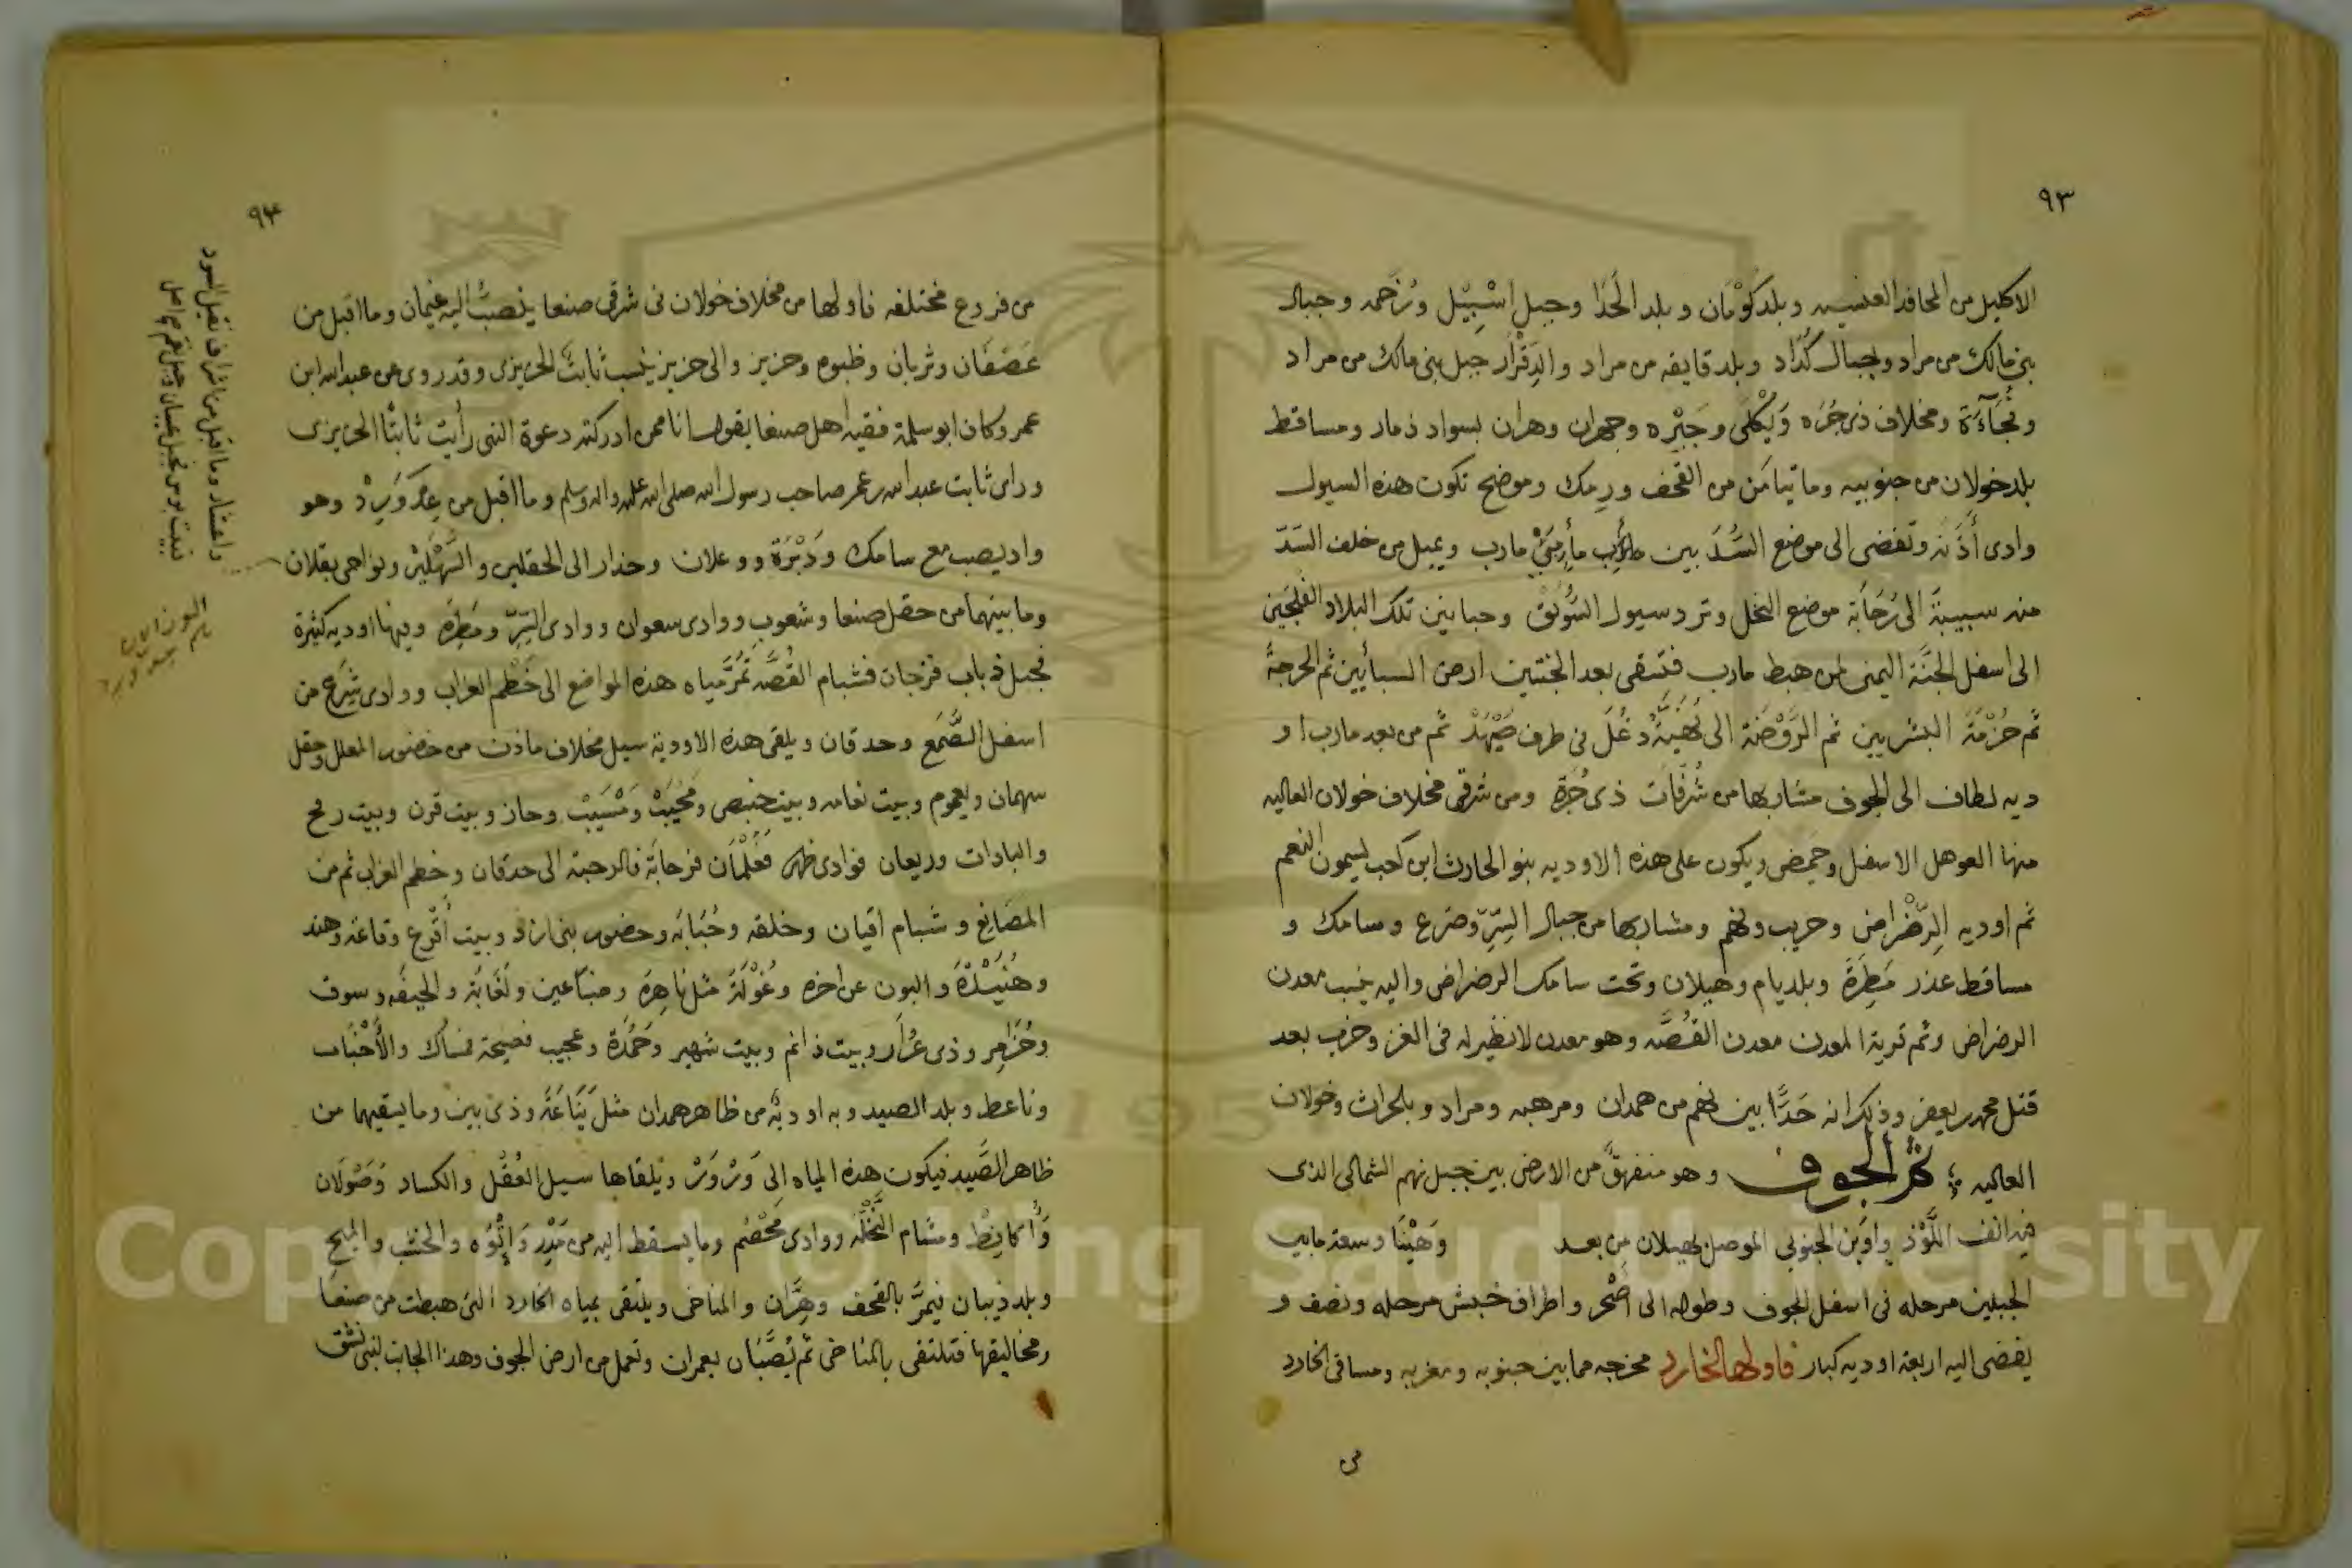 ٩٣
الاكليل من المحافد العنسيه وبلد كَوْمَان وبلد الحَدَا وجبل اسْبِيْل وذَخمه وجبال
بنى مالك من مراد وجبال كُدَاد وبلد قايفه من مراد والدِقْرَار جبل بنى مالك من مراد
ومخلاف ذى جُرَه وَيَكْلَى وجَبْره وجهران وهران بسواد ذمار ومساقط
بلد خولان من جنوبيه وما تيامَن من القحف ورِمك وموضح تكون هذه السيول
وادى أَذَنَه وتفضى الى موضع السَدّ بين مأزِمَىْ مارب ويميل من خلف السَدّ
منه سبيبة الى رُحَابَة موضع النخل وترد سيول السُوَيْق وحبابين تلك البلاد الفلجين
الى اسفل الجنّة اليمنى لمن هبط مارب فتسقى بعد الجنتين ارض السبأيين ثم الحرجةُ
ثم حُزْمَة البشريين ثم الرَوْضَة الى دَغَل فى طرف صَيْهَدْ ثم من بعد مارب او
ديه لطاف الى الجوف مشاربها من شُرفَات ذى جُرَة ومن شرقى مخلاف خولان العاليه
منها العوهل الاسفل وحَمِض ويكون على هذه الاوديه بنو الحارث ابن كعب يسيمون النعم
ثم اوديه الرَضْراض وحريب ونهم ومشاربها من جبال السِرّ وضرع وسامك و
مساقط عذر مَطِرَة وبلد يام وهيلان وتحت سامك الرضراض واليه ينسب معدن
الرضراض وثم قرية المعدن معدن الفُضَّه وهو معدن لا نظير له فى الغزر وخرب بعد
قتل محمد بن يعفر وذلك انه حَدًّا بين نهم من همدان ومرهبه ومراد وبلحراث وخولان
العاليه ؛ ثُمَّ الجوف وهو منفهق من الارض بين جبل نهم الشمالى الذى
فيه انف اللَوْذ واوَبن الجنوبى الموصل بهيلان من بعد وَهَيْنَا وسعة ما بين
الجبلين مرحله فى اسفل الجوف وطوله الى اصْحر واطراف خبش مرحله ونصف و
يفضى اليه اربعة اوديه كبار فاولها الخارد مخرجه مما بين جنوبه ومغربه ومساقى الخارد
من
٩٤
من فروع مختلفه فاولها من مخلاف خولان فى شرقى صنعا ينصبّ اليه غيمان وما اقبل من
عَصَفَان وثربان وظبوه وحزيز والى حزيز ينسب ثابتَ الحزيزى وقد روى عن عبدالله ابن
عمر وكان ابو سلمة فقيه اهل صنعا يقول انا ممن ادركته دعوة النبى رأيت ثابتًا الحزيزى
وراى ثابت عبدالله بن عمر صاحب رسول الله صلى الله عليه واله وسلم وما اقبل من عِدّ وَرِدْ وهو
واد يصب مع سامك ودَبْرَة ووعلان وخدار الى الحقلين والسَهْلَيْن ونواحى بقلان
وما بينهما من حقل صنعا وشعوب ووادى سعوان ووادى السِرّ ومَطِرَة وفيها اوديه كثيرة
فجبل ذباب فرجات فشبام القُصَّه تَمُرّ مياه هذه المواضع الى خَطْم الغراب ووادى شَرِع من
اسفل الصَّمَع وحدقان ويلقى هذه الاودية سيل مخلاف ماذن من حضور المعلل وحقل
سهمان ويعموم وبيت نعامه وبيت حنبص ومَحْيَبْ ومَسْيَبْ وحاز وبيت قرن وبيت رفح
والبادات وريعان فوادى ضهر فَعَلْمَان فرحابَة فالرحبة الى حدقان وخطم الغراب ثم من
المصانع وشبام اقيان وخلقه وحُبَابَه وحضور بنى ازد وبيت أَقْرع وقاعَة وهند
وهُنَيْدَة والبون عن اخره وغُوْلَة مثل ناهِرَة وضبَاعين ولَغَابَة والحيفَه وسوق
وحُزَامِر وذى عُرَار وبيت ذانم وبيت شهير وحَمُدَة وعجيب فصيحة فمساك والأَخْبَاب
وناعط وبلد الصيد وبه اوديَة من ظاهر همدان مثل يَنَاعَة وذى بين وما يسقيهما من
ظاهر الصَّيد فيكون هذه المياه الى وَرْوَرْ ويلقاها سيل العُقْل والكساد وَصَوْلَان
وَأَكانِطْ ومشام النَخْلَه ووادى مَحْصُم وما يسقط اليه من مَدَر وَإِتْوُه والخشب والميح
وبلد ذيبان فيمرّ بالقحف وهِرَّان والمناحى ويلتقى بمياه الخارد التى هبطت من صنعا
ومخاليفها فتلتقى بالمناحى ثم يُصبَّان بعمران وتعمل من ارض الجوف وهذا الجانب لبنى نشق
واعشار وما اقبل من اشراف نقيل السود